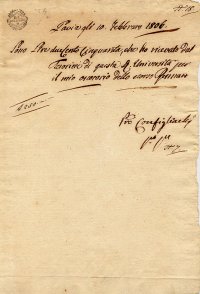 Pavia gli 10. Febbraro 1806.
Sono Lire duecento cinquanta, che ho ricevuto dal
Tesoriere di questa R. Università per
il mio onorario dello corso Gennaro
£ 250
Configliachi